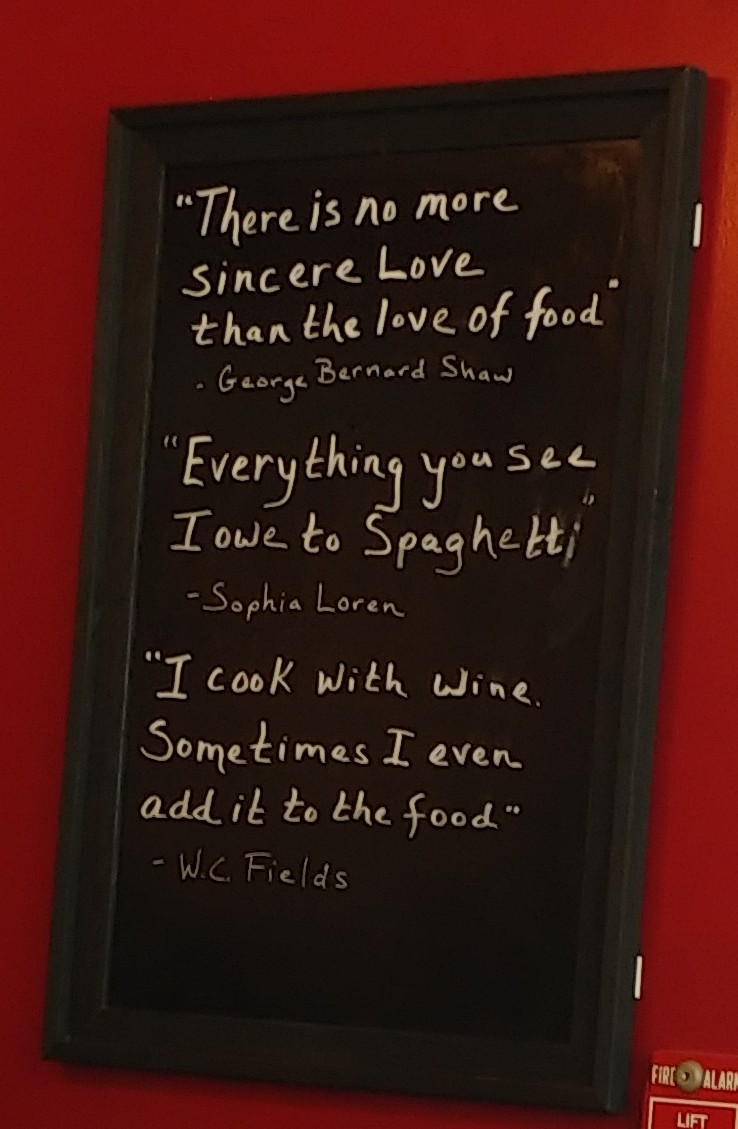 "There is no more
sincere Love
than the love of food"
- George Bernard Shaw
"Everything you see
I owe to Spaghetti"
- Sophia Loren
"I cook with wine.
Sometimes I even
add it to the food"
- W.C. Fields
FIRE ALARM
LIFT